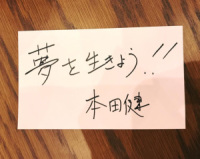 夢を生きよう..!!
本田健